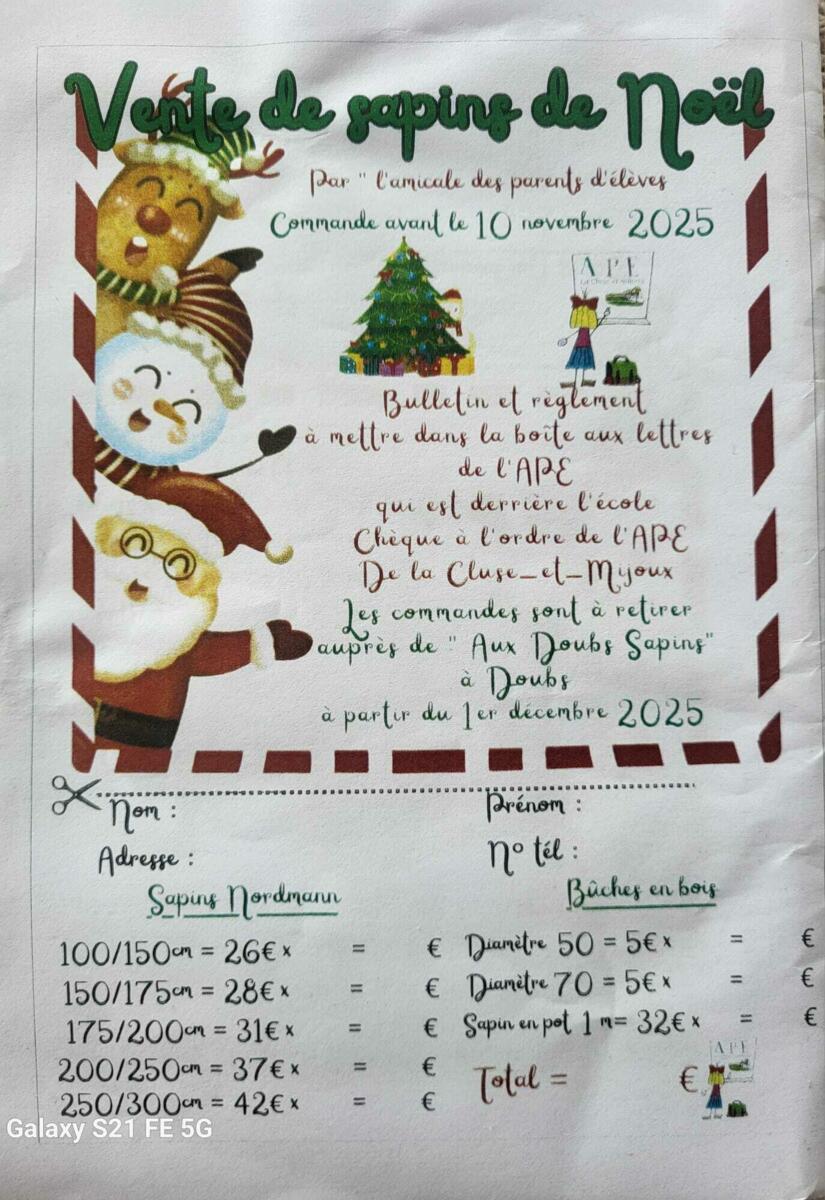 Vente de sapins de Noël
Par " l'amicale des parents d'élèves
Commande avant le 10 novembre 2025
APE
Bulletin et règlement
à mettre dans la boîte aux lettres
de l'APE
qui est derrière l'école
Chèque à l'ordre de l'APE
De la Cluse_et_Myoux
Les commandes sont à retirer
auprès de " Aux Doubs Sapins"
à Doubs
à partir du 1er décembre 2025
Nom : Prénom :
Adresse : N° tél :
Sapins Nordmann
100/150cm = 26€ x = €
150/175cm = 28€ x = €
175/200cm = 31€ x = €
200/250cm = 37€ x = €
250/300cm = 42€ x = €
Bûches en bois
Diamètre 50 = 5€ x = €
Diamètre 70 = 5€ x = €
Sapin en pot 1 m= 32€ x = €
Total = €
APE
Galaxy S21 FE 5G